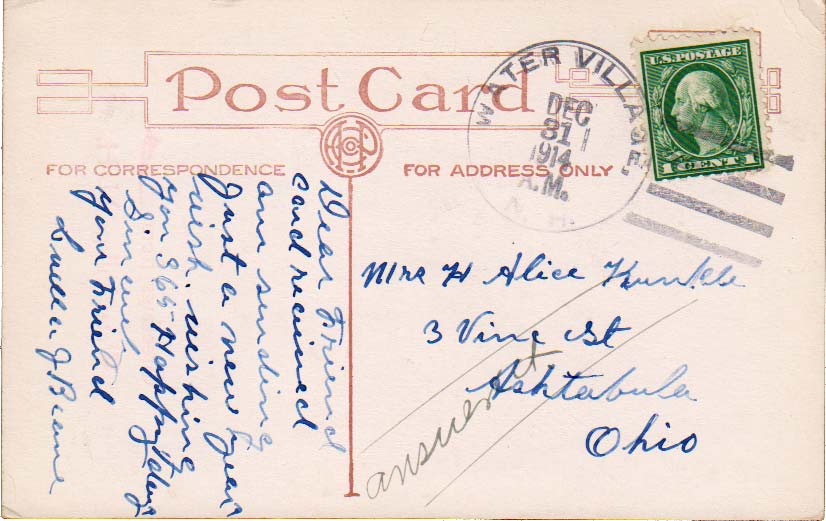 Post Card
FOR CORRESPONDENCE
FOR ADDRESS ONLY
WATER VILLAGE
DEC
31
1914
A.M.
N. H.
U.S. POSTAGE
1 CENT 1
Dear Friend
card recieved
am sending
Just a new year
wish. wishing
you 365 Happy days
Sincerely
your Friend
Luella J
Mrs H Alice
3 Vine St
Ashtabula
Ohio
answered